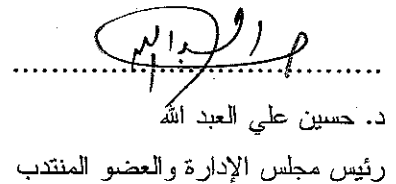 ................................
د. حسين علي العبد الله
رئيس مجلس الإدارة والعضو المنتدب